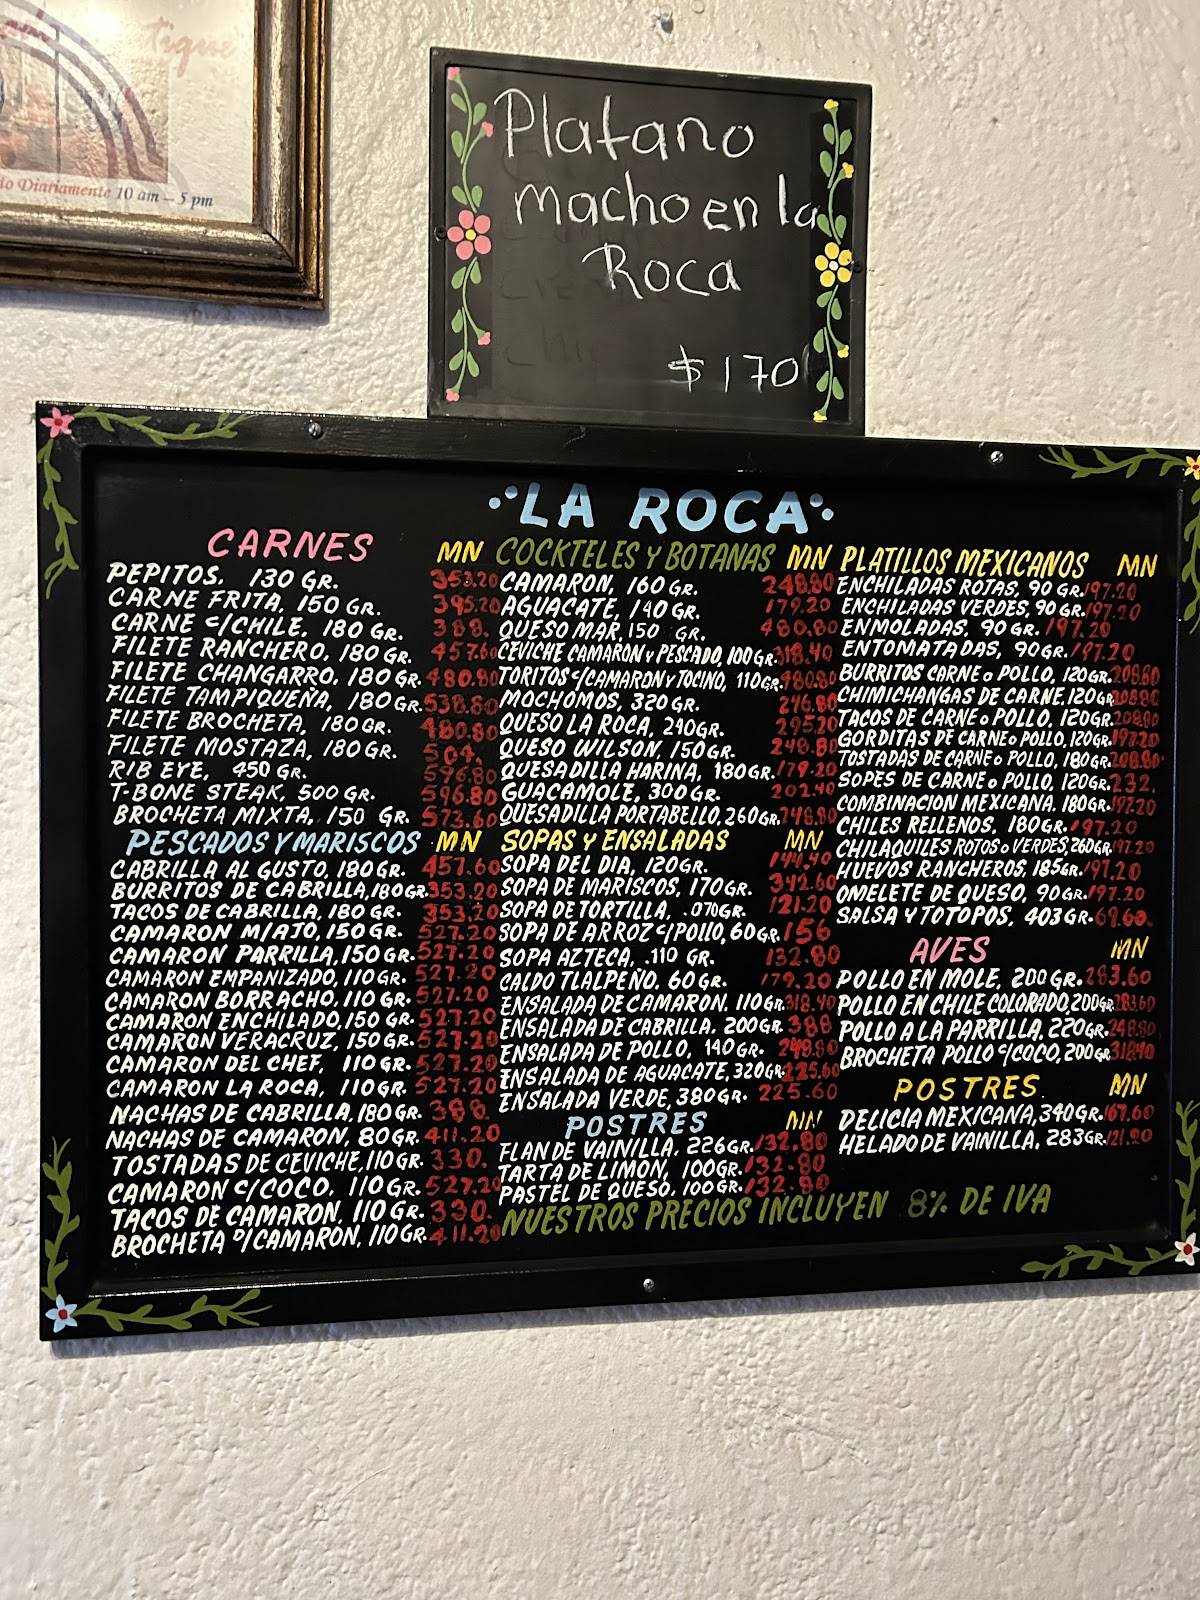 tique
Diariamente 10 am – 5 pm
Platano
macho en la
Roca
$170
LA ROCA
CARNES MN
PEPITOS. 130 GR. 353.20
CARNE FRITA, 150 GR. 395.20
CARNE C/CHILE, 180 GR. 388.
FILETE RANCHERO, 180 GR. 457.60
FILETE CHANGARRO, 180 GR. 480.80
FILETE TAMPIQUEÑA, 180 GR. 538.80
FILETE BROCHETA, 180 GR. 480.80
FILETE MOSTAZA, 180 GR. 504.
RIB EYE, 450 GR. 596.80
T-BONE STEAK, 500 GR. 596.80
BROCHETA MIXTA, 150 GR. 573.60
PESCADOS Y MARISCOS MN
CABRILLA AL GUSTO, 180 GR. 457.60
BURRITOS DE CABRILLA, 180 GR. 353.20
TACOS DE CABRILLA, 180 GR. 353.20
CAMARON M/AJO, 150 GR. 527.20
CAMARON PARRILLA, 150 GR. 527.20
CAMARON EMPANIZADO, 110 GR. 527.20
CAMARON BORRACHO, 110 GR. 527.20
CAMARON ENCHILADO, 150 GR. 527.20
CAMARON VERACRUZ, 150 GR. 527.20
CAMARON DEL CHEF, 110 GR. 527.20
CAMARON LA ROCA, 110 GR. 527.20
NACHAS DE CABRILLA, 180 GR. 388.
NACHAS DE CAMARON, 80 GR. 411.20
TOSTADAS DE CEVICHE, 110 GR. 330.
CAMARON C/COCO, 110 GR. 527.20
TACOS DE CAMARON, 110 GR. 330.
BROCHETA D/CAMARON, 110 GR. 411.20
COCKTELES Y BOTANAS MN
CAMARON, 160 GR. 248.80
AGUACATE, 140 GR. 179.20
QUESO MAR, 150 GR. 480.80
CEVICHE CAMARON Y PESCADO, 100 GR. 318.40
TORITOS C/CAMARON Y TOCINO, 110 GR. 480.80
MACHOMOS, 320 GR. 276.80
QUESO LA ROCA, 240 GR. 295.20
QUESO WILSON, 150 GR. 248.80
QUESADILLA HARINA, 180 GR. 179.20
GUACAMOLE, 300 GR. 202.40
QUESADILLA PORTABELLO, 260 GR. 248.80
SOPAS Y ENSALADAS MN
SOPA DEL DIA, 120 GR. 144.40
SOPA DE MARISCOS, 170 GR. 342.60
SOPA DE TORTILLA, .070 GR. 121.20
SOPA DE ARROZ C/POLLO, 60 GR. 156
SOPA AZTECA, .110 GR. 132.80
CALDO TLALPEÑO. 60 GR. 179.20
ENSALADA DE CAMARON. 110 GR. 318.40
ENSALADA DE CABRILLA. 200 GR. 388
ENSALADA DE POLLO, 140 GR. 248.80
ENSALADA DE AGUACATE, 320 GR. 225.60
ENSALADA VERDE, 380 GR. 225.60
POSTRES MN
FLAN DE VAINILLA, 226 GR. 132.80
TARTA DE LIMON, 100 GR. 132.80
PASTEL DE QUESO, 100 GR. 132.80
PLATILLOS MEXICANOS MN
ENCHILADAS ROJAS, 90 GR. 197.20
ENCHILADAS VERDES, 90 GR. 197.20
ENMOLADAS, 90 GR. 197.20
ENTOMATADAS, 90 GR. 197.20
BURRITOS CARNE O POLLO, 120 GR. 208.80
CHIMICHANGAS DE CARNE, 120 GR. 208.80
TACOS DE CARNE O POLLO, 120 GR. 208.80
GORDITAS DE CARNE O POLLO, 120 GR. 197.20
TOSTADAS DE CARNE O POLLO, 180 GR. 208.80
SOPES DE CARNE O POLLO, 120 GR. 232.
COMBINACION MEXICANA. 180 GR. 197.20
CHILES RELLENOS, 180 GR. 197.20
CHILAQUILES ROJOS O VERDES, 260 GR. 197.20
HUEVOS RANCHEROS, 185 GR. 197.20
OMELETE DE QUESO, 90 GR. 197.20
SALSA Y TOTOPOS, 403 GR. 69.60.
AVES MN
POLLO EN MOLE, 200 GR. 283.60
POLLO EN CHILE COLORADO, 200 GR. 283.60
POLLO A LA PARRILLA, 220 GR. 248.80
BROCHETA POLLO C/COCO, 200 GR. 318.40
POSTRES MN
DELICIA MEXICANA, 340 GR. 167.60
HELADO DE VAINILLA, 283 GR. 121.20
NUESTROS PRECIOS INCLUYEN 8% DE IVA